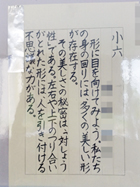 小六
形に目を向けてみよう。私たち
の身の回りには、多くの美しい形
が存在する。
その美しさの秘密は、「対しょう
性」である。左右や上下のつり合い
がとれた形には、人を引き付ける
不思議な力がある。